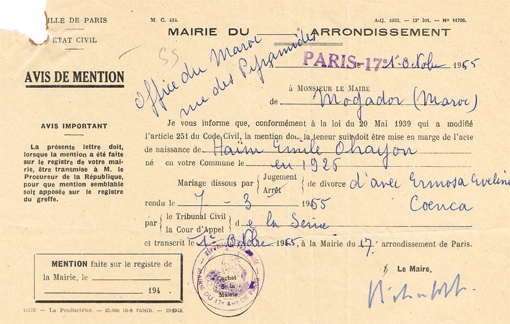 VILLE DE PARIS
ETAT CIVIL
M. C. 414.
Adj. 1933. — 13e lot. — N° 14700.
MAIRIE DU ARRONDISSEMENT
55
Office du Maroc
rue des Pyramides
PARIS-17e 1er Octobre 1955
AVIS DE MENTION
à MONSIEUR LE MAIRE
de Mogador (Maroc)
AVIS IMPORTANT
La présente lettre doit, lorsque la mention a été faite sur le registre de votre mairie, être transmise à M. le Procureur de la République, pour que mention semblable soit apposée sur le registre du greffe.
Je vous informe que, conformément à la loi du 20 Mai 1939 qui a modifié
l'article 251 du Code Civil, la mention dont la teneur suit doit être mise en marge de l'acte
de naissance de Haïm Emile Ohayon
né en votre Commune le en 1925
Mariage dissous par Jugement Arrêt de divorce d'avec Ermosa Eveline
rendu le 7 - 3 - 1955 Coenca
par le Tribunal Civil la Cour d'Appel de la Seine
et transcrit le 1er Octobre 1955, à la Mairie du 17e arrondissement de Paris.
MENTION faite sur le registre de
la Mairie, le
194 .
Cachet
de la
Mairie
Le Maire,
La Productrice.